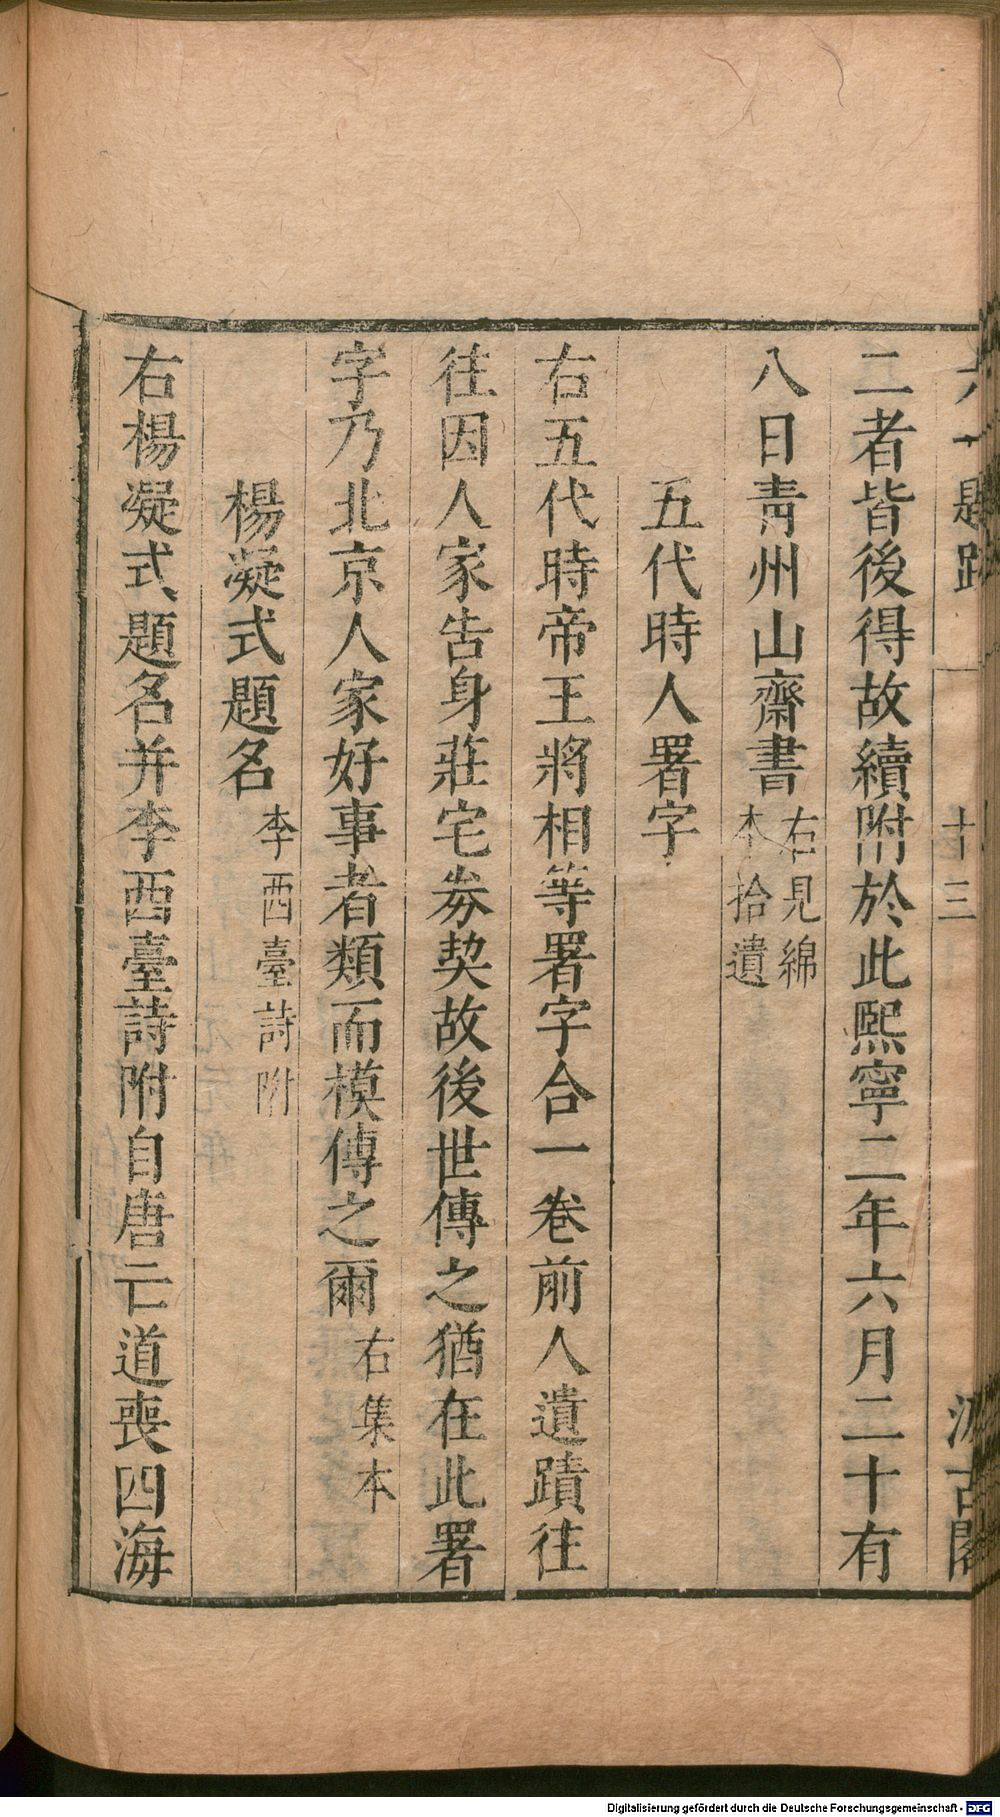 六一題跋 十三 汲古閣
二者皆後得故續附於此熙寧二年六月二十有
八日靑州山齋書右見綿本拾遺
五代時人署字
右五代時帝王將相等署字合一卷前人遺蹟往
往因人家告身莊宅券契故後世傳之猶在此署
字乃北京人家好事者類而模傳之爾右集本
楊凝式題名李西臺詩附
右楊凝式題名并李西臺詩附自唐亡道喪四海
Digitalisierung gefördert durch die Deutsche Forschungsgemeinschaft - DFG